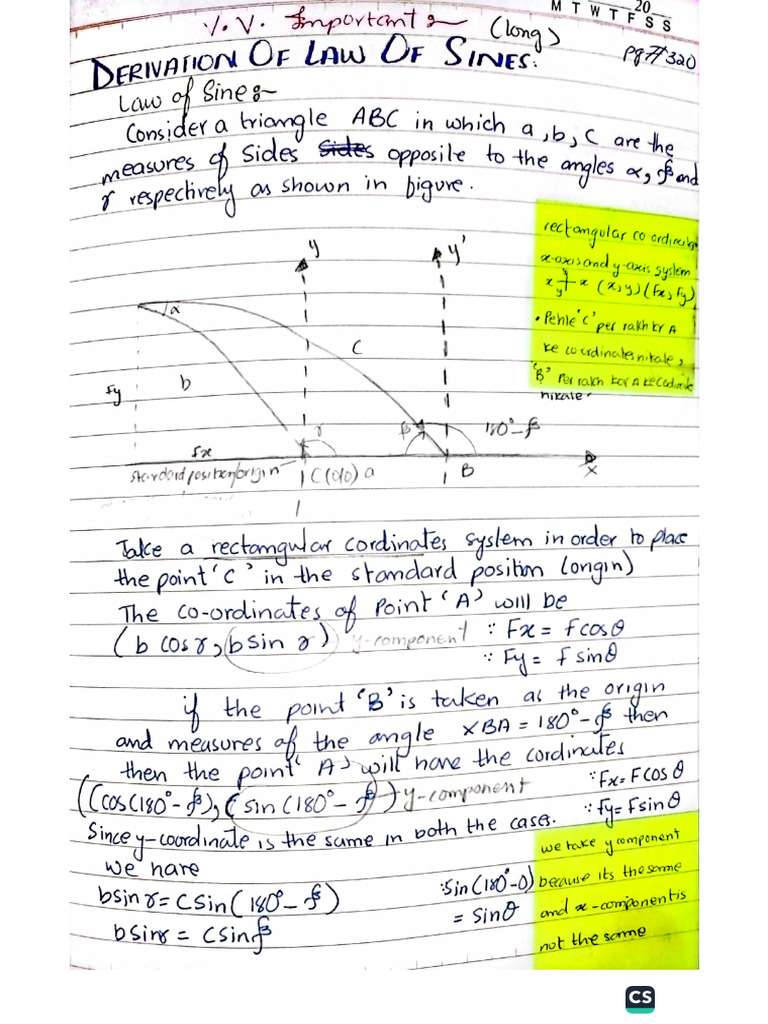 M T W T F S S
20
V.V. Important
(long)
DERIVATION OF LAW OF SINES:
pg # 320
Law of Sine:-
Consider a triangle ABC in which a, b, c are the
measures of sides sides opposite to the angles α, β and
γ respectively as shown in figure.
rectangular co-ordinates
x-axis and y-axis system
x y x (x,y) (Fx, Fy)
y
• Pehle 'C' per rakh kr A
ke coordinates nikale,
'B' Per rakh kar A ke Codinate
nikale.
y
y'
α
c
b
Fy
γ
β
180°-β
Fx
x
standard position/origin
C(0/0) a
B
Take a rectangular cordinates system in order to place
the point 'C' in the standard position (origin)
The co-ordinates of Point 'A' will be
(b cos γ, b sin γ) y-component ∵ Fx = f cos θ
∵ Fy = f sin θ
if the point 'B' is taken as the origin
and measures of the angle XBA = 180° - β then
then the point 'A' will have the cordinates
(Ccos(180° - β), C sin (180° - β)) y-component
∵ Fx = F cos θ
∵ fy = F sin θ
Since y-coordinate is the same in both the cases.
we have
b sin γ = C sin (180° - β)
∵ Sin (180° - θ)
= sin θ
b sin γ = C sin β
we take y component
because its the same
and x-component is
not the same
CS